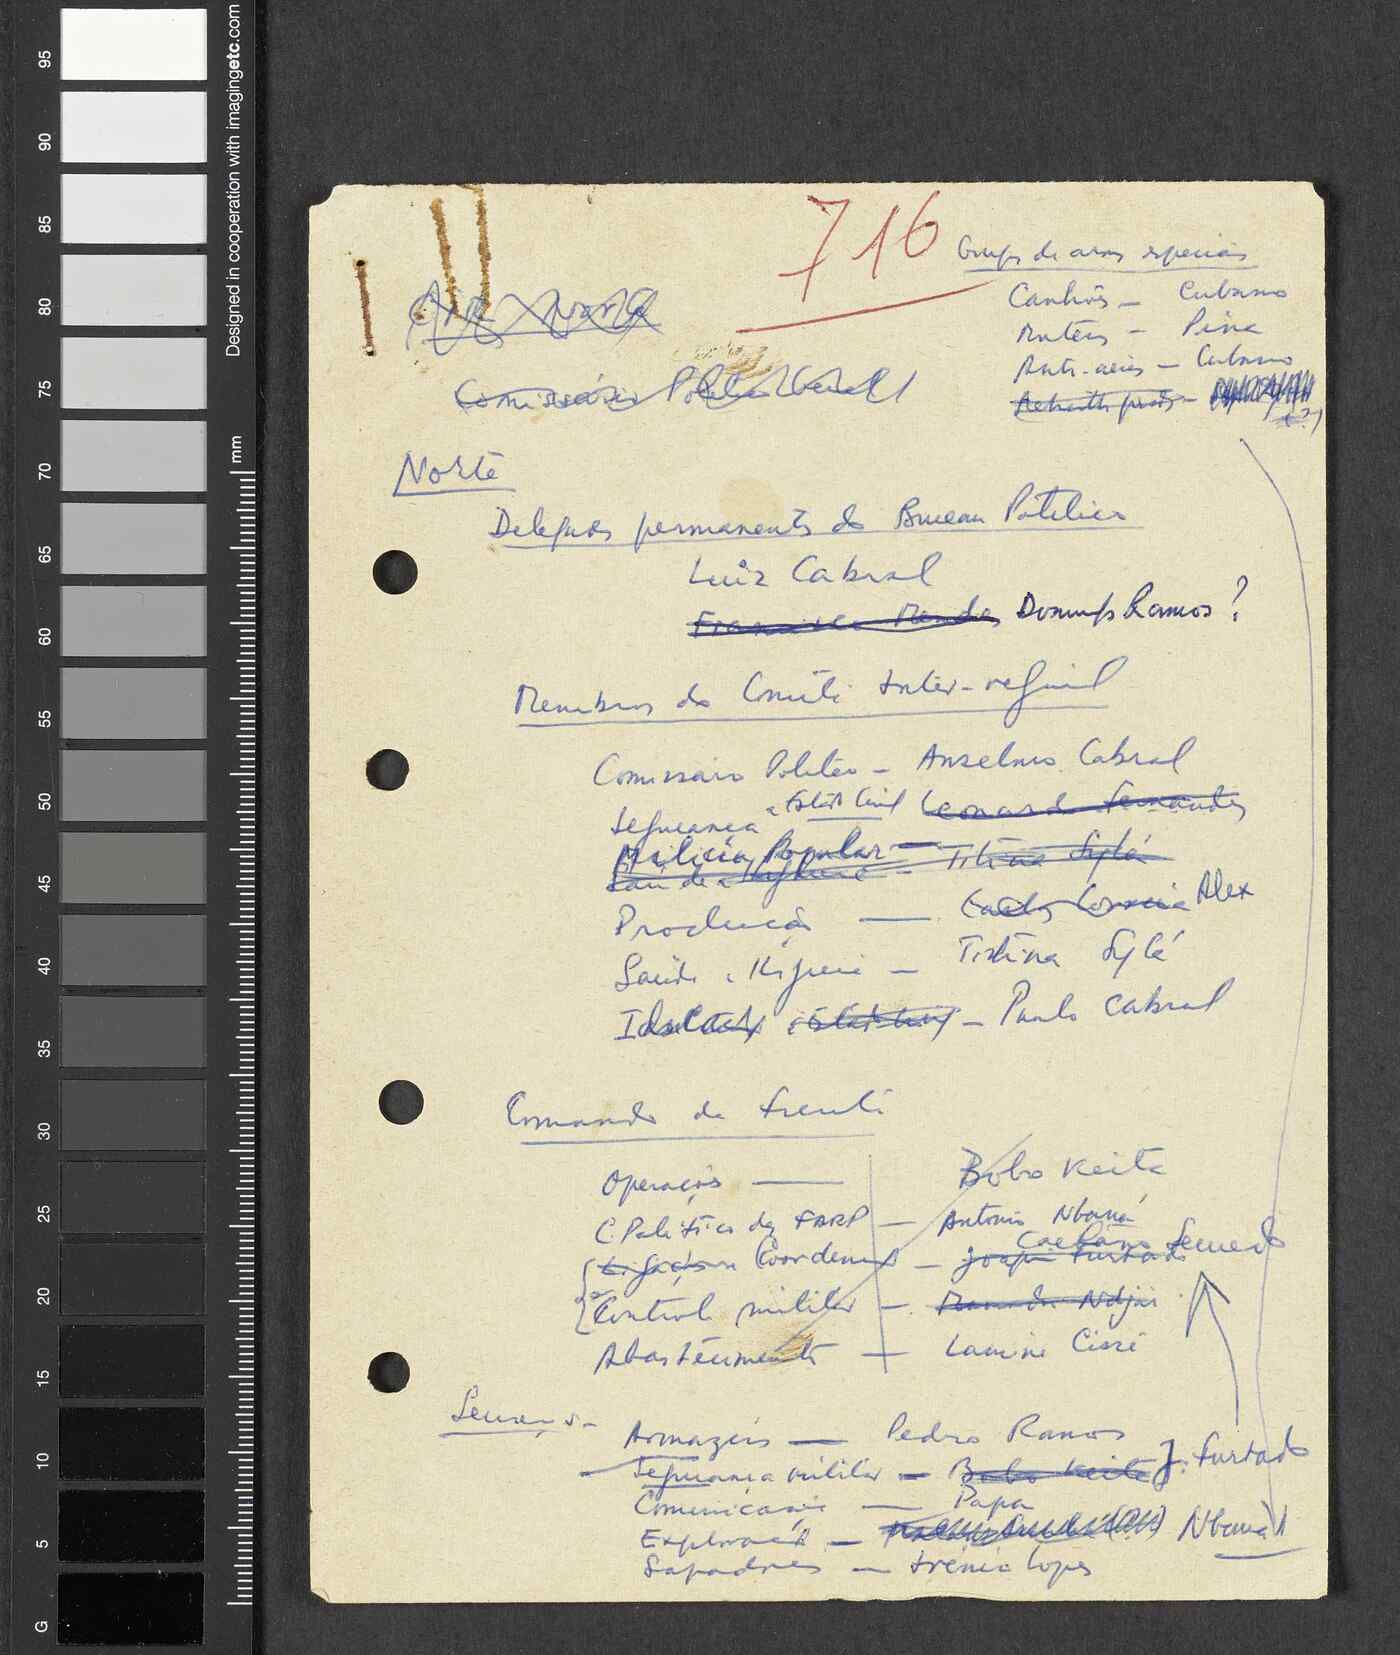 716
Grupo de armas especiais
Canhões – Cubano
Morteiros – Pina
Anti-aérea – Cubano
(?)
Comissário Político Geral
Norte
Delegados permanentes do Bureau Político
Luiz Cabral
Francisco Mendes Domingos Ramos?
Membros do Comité Inter-regional
Comissário Político – Anselmo Cabral
Segurança e Estado Civil Leonardo Fernandes
Milícia Popular –
Saúde e Higiene – Titina Sylá
Produção — Carlos Correia Alex
Saúde e Higiene – Titina Sylá
– Paulo Cabral
Comando da frente
Operações — Bobo Keita
C. Político das FARP – Antonio Nbaná
Ligação Coordenação – Joaquim Furtado Caetano Semedo
Controle militar – Mamadu Ndjai
Abastecimento — Lamine Cissé
Serviços –
Armazéns — Pedro Ramos
Segurança militar – Bobo Keita J. Furtado
Comunicações — Papa
Exploração – Nbaná
Sapadores — Irénio Lopes
95
90
85
80
75
70
65
60
55
50
45
40
35
30
25
20
15
10
5
G
mm
Designed in cooperation with imagingetc.com